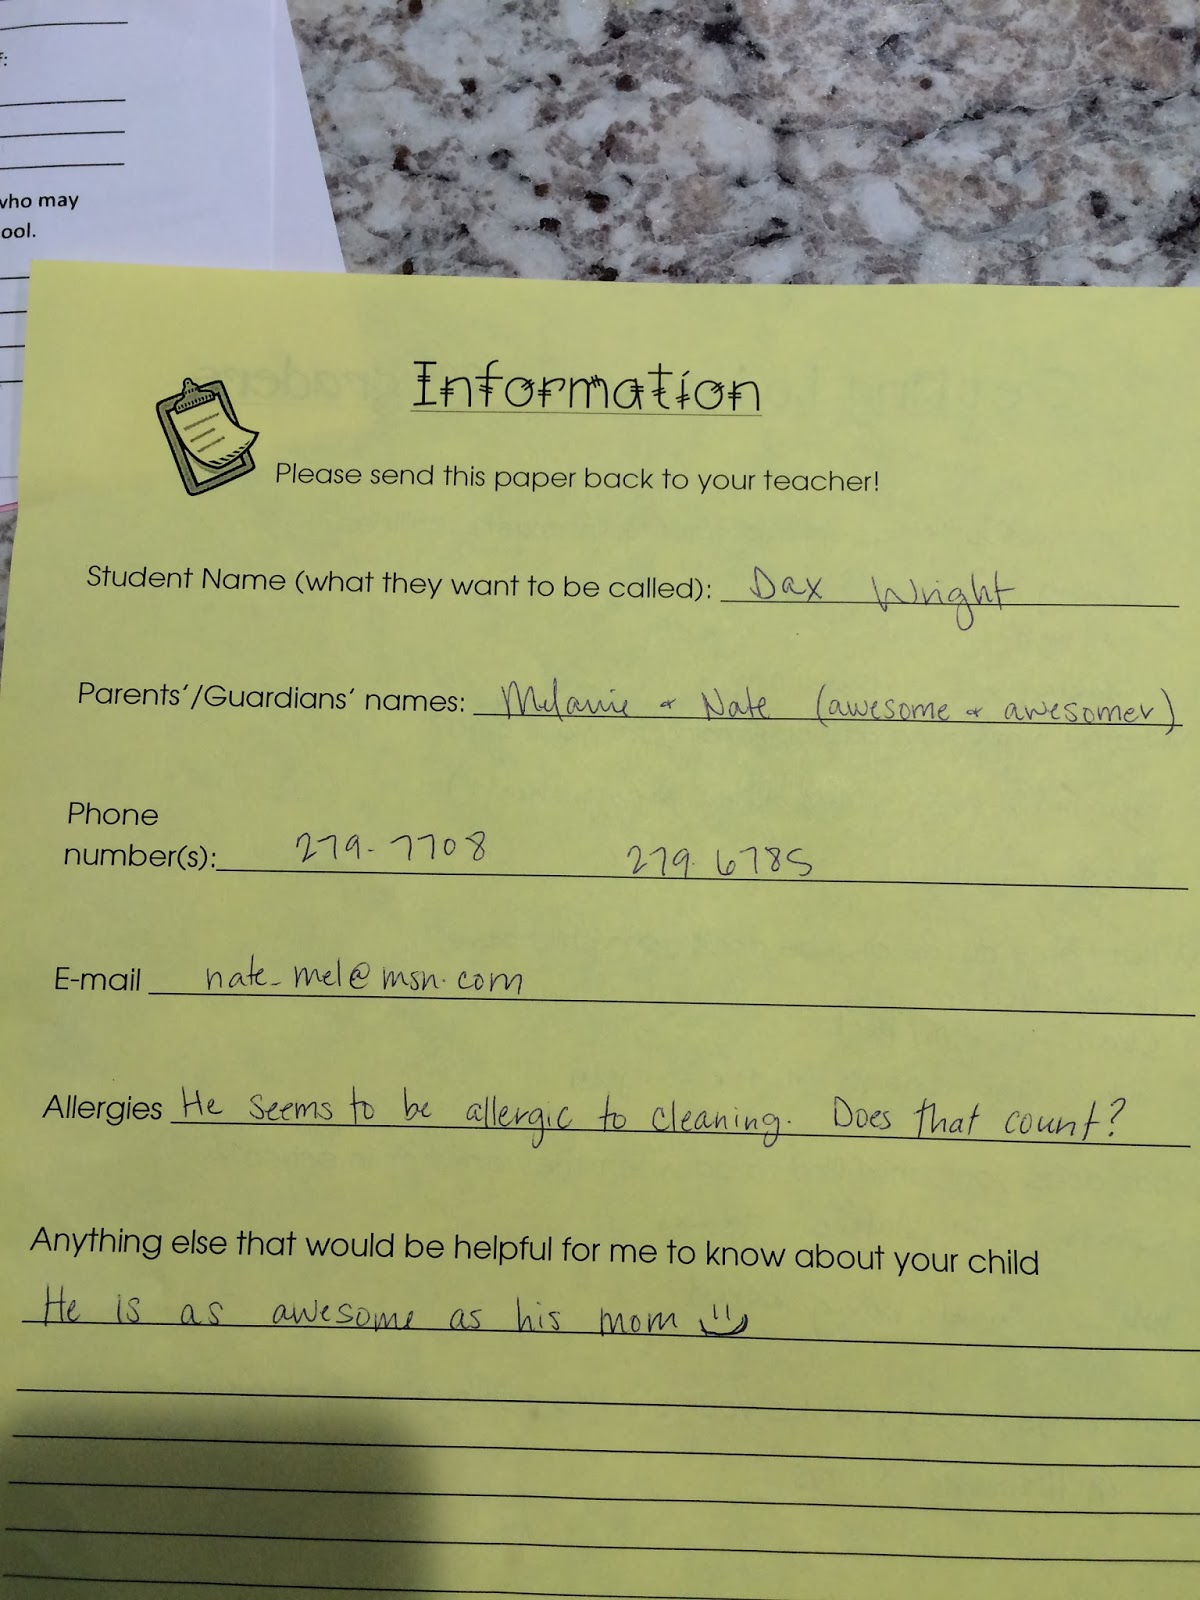 f:
who may
ool.
Information
Please send this paper back to your teacher!
Student Name (what they want to be called): Dax Wright
Parents'/Guardians' names: Melanie & Nate (awesome & awesomer)
Phone
number(s): 279-7708 279-6785
E-mail nate_mel@msn.com
Allergies He seems to be allergic to cleaning. Does that count?
Anything else that would be helpful for me to know about your child
He is as awesome as his mom